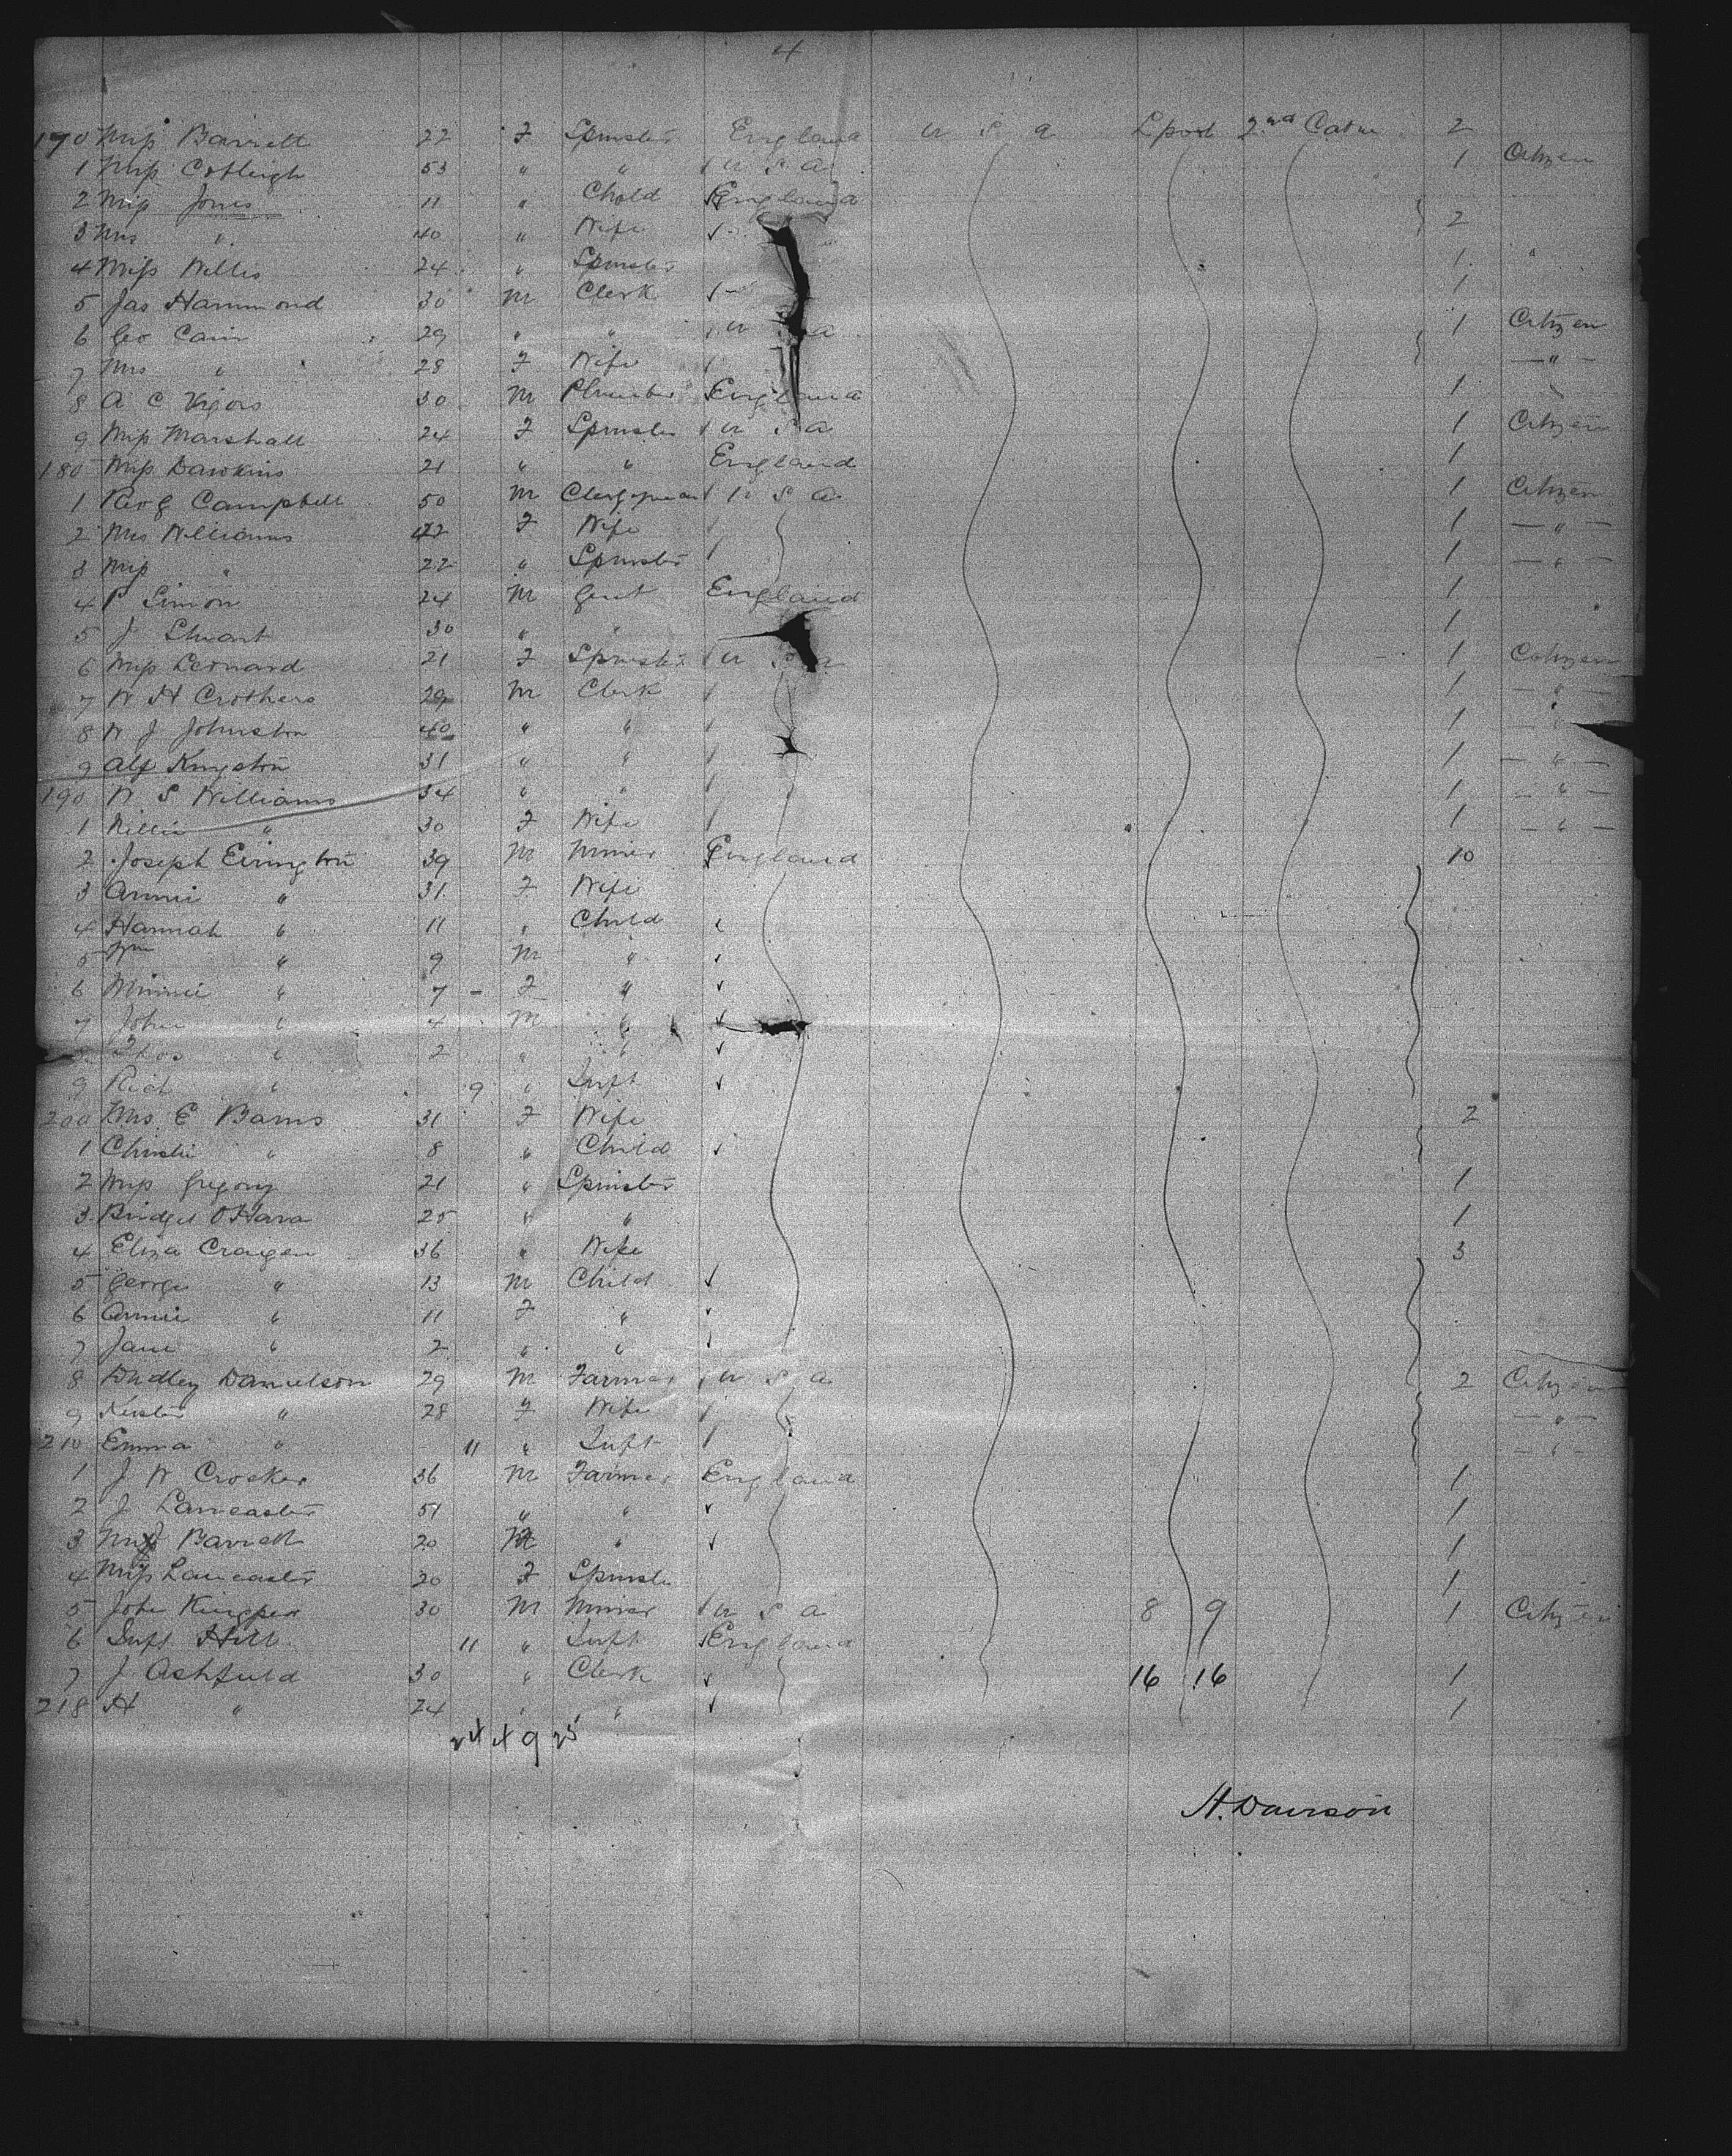 4
170 Miss Barrett 22 F Spinster England U S A Lpool 2nd Cabin 2
1 Miss 53 " " U S A 1 Citizen
2 Miss Jones 11 " Child England
3 Mrs " 40 " Wife 2
4 Miss Willis 24 " Spinster 1 "
5 Jas Hammond 30 M Clerk 1
6 Geo Cain 29 " " U S A 1 Citizen
7 Mrs " 28 F Wife — " —
8 A C Vigors 30 M Plumber England 1
9 Miss Marshall 24 F Spinster U S A 1 Citizen
180 Miss Dawkins 21 " " England 1
1 Campbell 50 M Clergyman U S A 1 Citizen
2 Mrs Williams 42 F Wife 1 — " —
3 Miss " 22 " Spinster 1 — " —
4 P Simon 24 M Gent England 1
5 J Stuart 30 " " 1
6 Miss Leonard 21 F Spinster U S A 1 Citizen
7 W H Crothers 29 M Clerk 1 — " —
8 W J Johnston 40 " " 1 — " —
9 Alf Kingston 31 " " 1 — " —
190 W S Williams 34 " " 1 — " —
1 Nellie " 30 F Wife 1 — " —
2 Joseph Errington 39 M Miner England 10
3 Annie " 31 F Wife
4 Hannah " 11 " Child
5 Wm " 9 M "
6 Minnie " 7 - F "
7 John " 4 M "
Thos " 2 " "
9 Rich " 9 " Inft
200 Mrs E Barns 31 F Wife 2
1 Christie " 8 " Child
2 Miss Gregory 21 " Spinster 1
3 Bridget O'Hara 25 " " 1
4 Eliza Craigen 36 " Wife 3
5 George " 13 M Child
6 Annie " 11 F "
7 Jane " 2 " "
8 Dudley Danielson 29 M Farmer U S A 2 Citizen
9 " 28 F Wife — " —
210 Emma " 11 " Inft — " —
1 J W Crocker 36 M Farmer England 1
2 J Lancaster 51 " " 1
3 Barrett 20 M " 1
4 Miss Lancaster 20 F Spinster 1
5 John 30 M Miner U S A 8 9 1 Citizen
6 Inft Hill 11 " Inft England
7 J Ashfield 30 " Clerk 16 16 1
218 H " 24 " " 1
24 4 9 25
H. Dawson